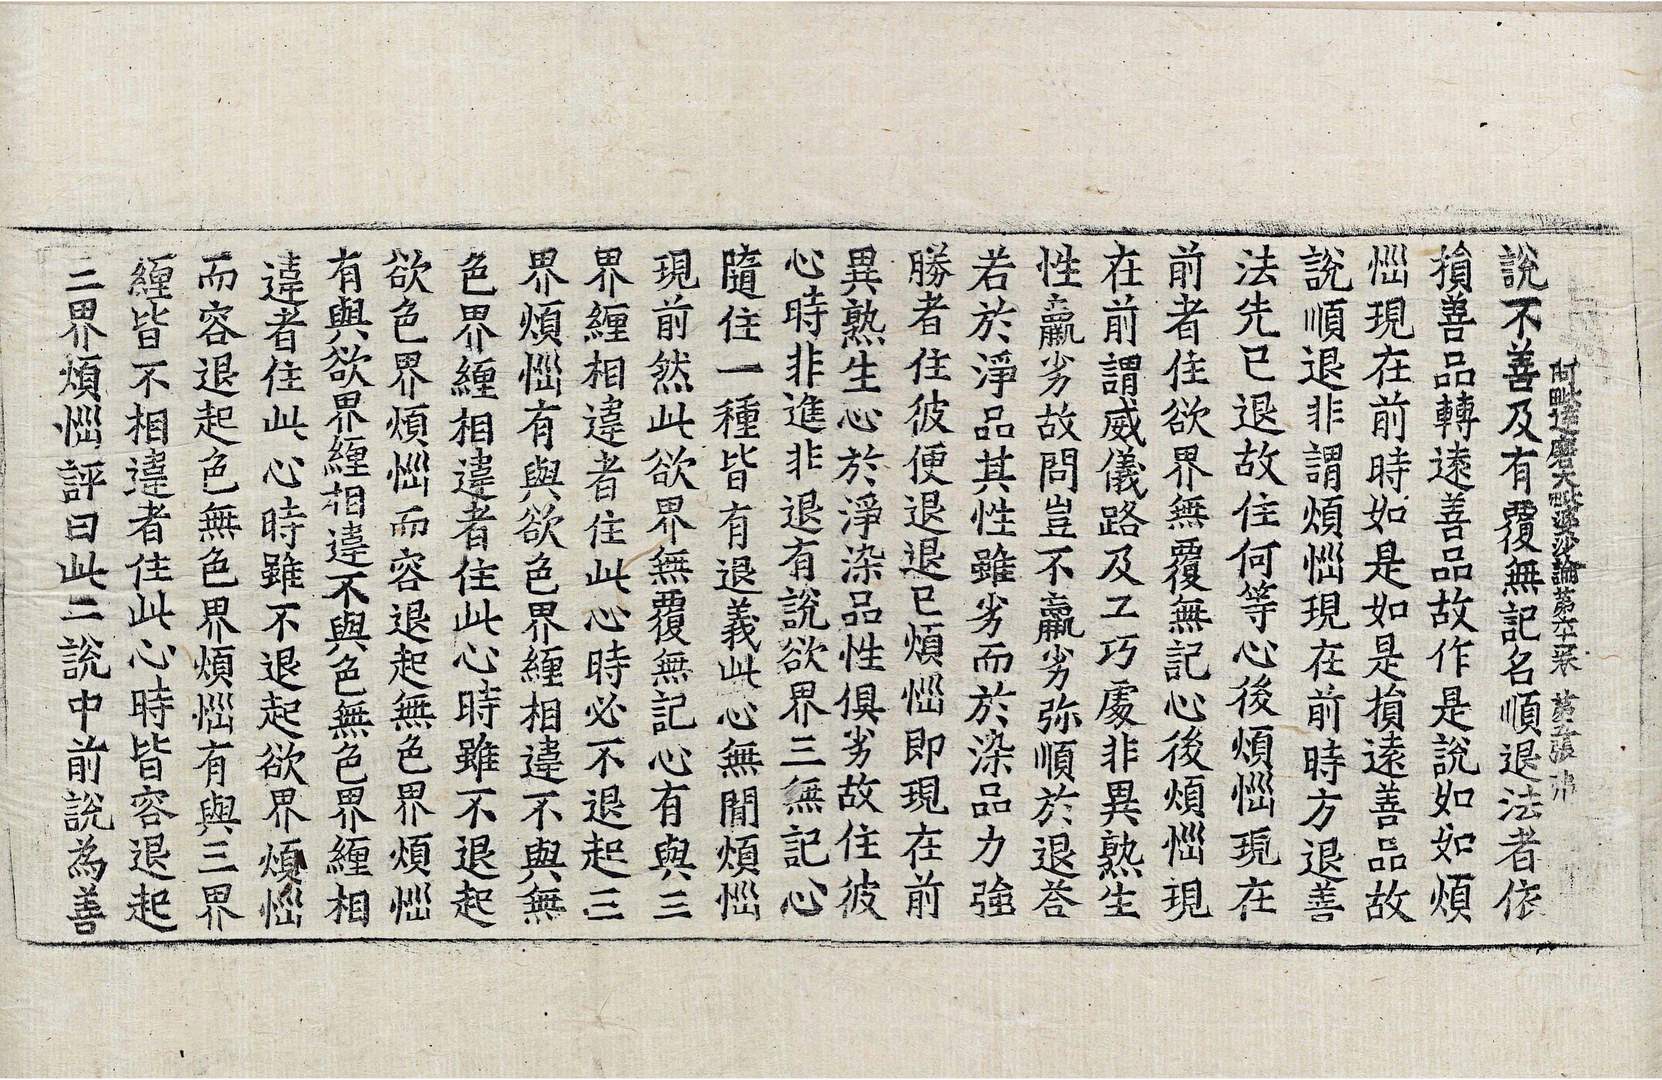 阿毗達磨大毗婆沙論第六十一卷 第五張 弗
說不善及有覆無記名順退法者依
損善品轉遠善品故作是說如如煩
惱現在前時如是如是損遠善品故
說順退非謂煩惱現在前時方退善
法先已退故住何等心後煩惱現在
前者住欲界無覆無記心後煩惱現
在前謂威儀路及工巧處非異熟生
性羸劣故問豈不羸劣弥順於退荅
若於淨品其性雖劣而於染品力強
勝者住彼便退退已煩惱即現在前
異熟生心於淨染品性俱劣故住彼
心時非進非退有說欲界三無記心
隨住一種皆有退義此心無間煩惱
現前然此欲界無覆無記心有與三
界纏相違者住此心時必不退起三
界煩惱有與欲色界纏相違不與無
色界纏相違者住此心時雖不退起
欲色界煩惱而容退起無色界煩惱
有與欲界纏相違不與色無色界纏相
違者住此心時雖不退起欲界煩惱
而容退起色無色界煩惱有與三界
纏皆不相違者住此心時皆容退起
三界煩惱評曰此二說中前說為善